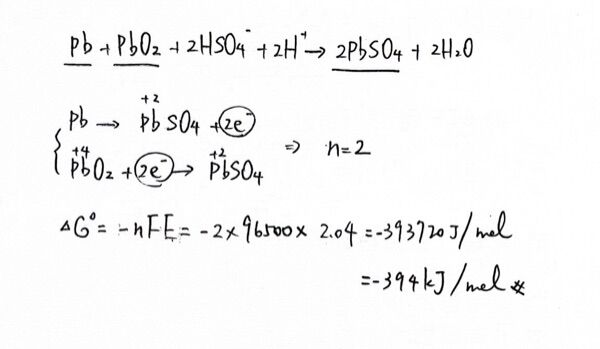 Pb + PbO₂ + 2HSO₄⁻ + 2H⁺ → 2PbSO₄ + 2H₂O
Pb → P̶b SO₄ + 2e⁻
+2
PbO₂ + 2e⁻ → PbSO₄
+4 +2
⇒ n=2
ΔG°= -nFE = -2×96500× 2.04 = -393720 J/mol
=-394kJ/mol #